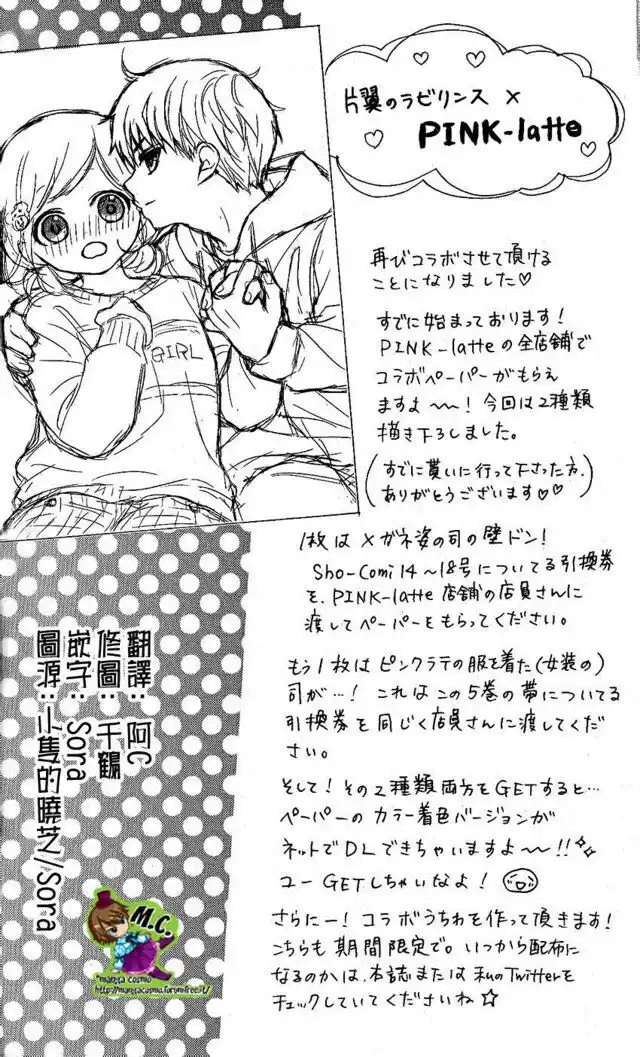 片翼のラビリンス ×
PINK-latte
再びコラボさせて頂ける
ことになりました♡
すでに始まっております!
PINK-latteの全店舗で
コラボペーパーがもらえ
ますよ〜〜! 今回は2種類
描き下ろしました。
(すでに貰いに行って下さった方、
ありがとうございます♡♡)
GIRL
1枚はメガネ姿の司の壁ドン!
Sho-Comi 14〜18号についてる引換券
を、PINK-latte店舗の店員さんに
渡してペーパーをもらってください。
もう1枚はピンクラテの服を着た(女装の)
司が…! これはこの5巻の帯についてる
引換券を同じく店員さんに渡してくだ
さい。
そして! その2種類両方をGETすると…
ペーパーのカラー着色バージョンが
ネットでDLできちゃいますよ〜〜!!
ユーGETしちゃいなよ!
さらにー! コラボうちわを作って頂きます!
こちらも期間限定で。いつから配布に
なるのかは、本誌または私のTwitterを
チェックしていてくださいね☆
翻譯: 阿C
修圖: 千鶴
嵌字: Sora
圖源: 小隻的曉芝/Sora
M.C.
*manga cosmio
http://mangacosmio.forumfree.it/